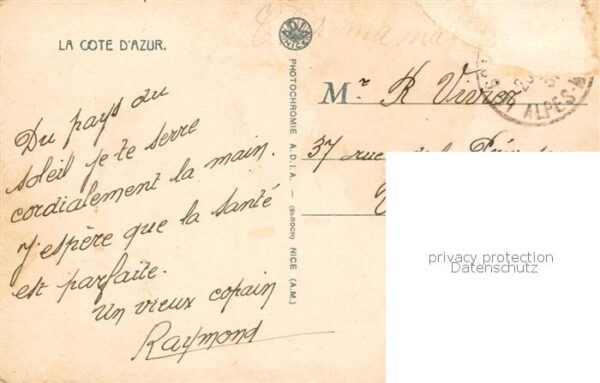 LA COTE D'AZUR.
Du pays du
soleil je te serre
cordialement la main.
J'espère que la santé
est parfaite.
Un vieux copain
Raymond
NICE
PHOTOCHROMIE A.D.I.A. — (St-ROCH) NICE (A.M.)
Mr R Vivier
37 rue de la
ALPES M
privacy protection
Datenschutz